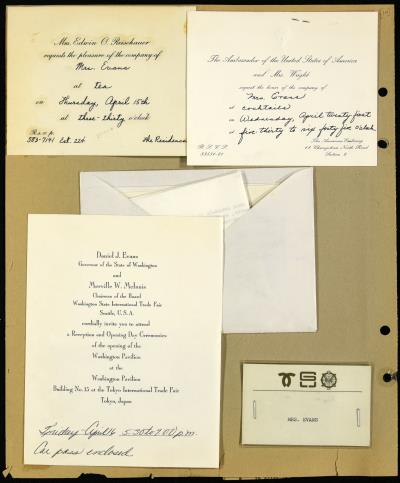 Mrs. Edwin O. Reischauer
requests the pleasure of the company of
Mrs. Evans
at tea
on Thursday, April 15th
at three-thirty o'clock
R.s.v.p.
583-7141 Ext. 224
The Residence
The Ambassador of the United States of America
and Mrs. Wright
request the honor of the company of
Mrs. Evans
at cocktails
on Wednesday, April twenty first
at five thirty to six forty five o'clock
R.S.V.P.
The American Embassy
Daniel J. Evans
Governor of the State of Washington
and
Merville W. McInnis
Chairman of the Board
Washington State International Trade Fair
Seattle, U.S.A.
cordially invite you to attend
a Reception and Opening Day Ceremonies
of the opening of the
Washington Pavilion
at the
Washington Pavilion
Building No. 15 at the Tokyo International Trade Fair
Tokyo, Japan
Friday April 16 5:30 to 7:00 p.m.
Car pass enclosed
MRS. EVANS